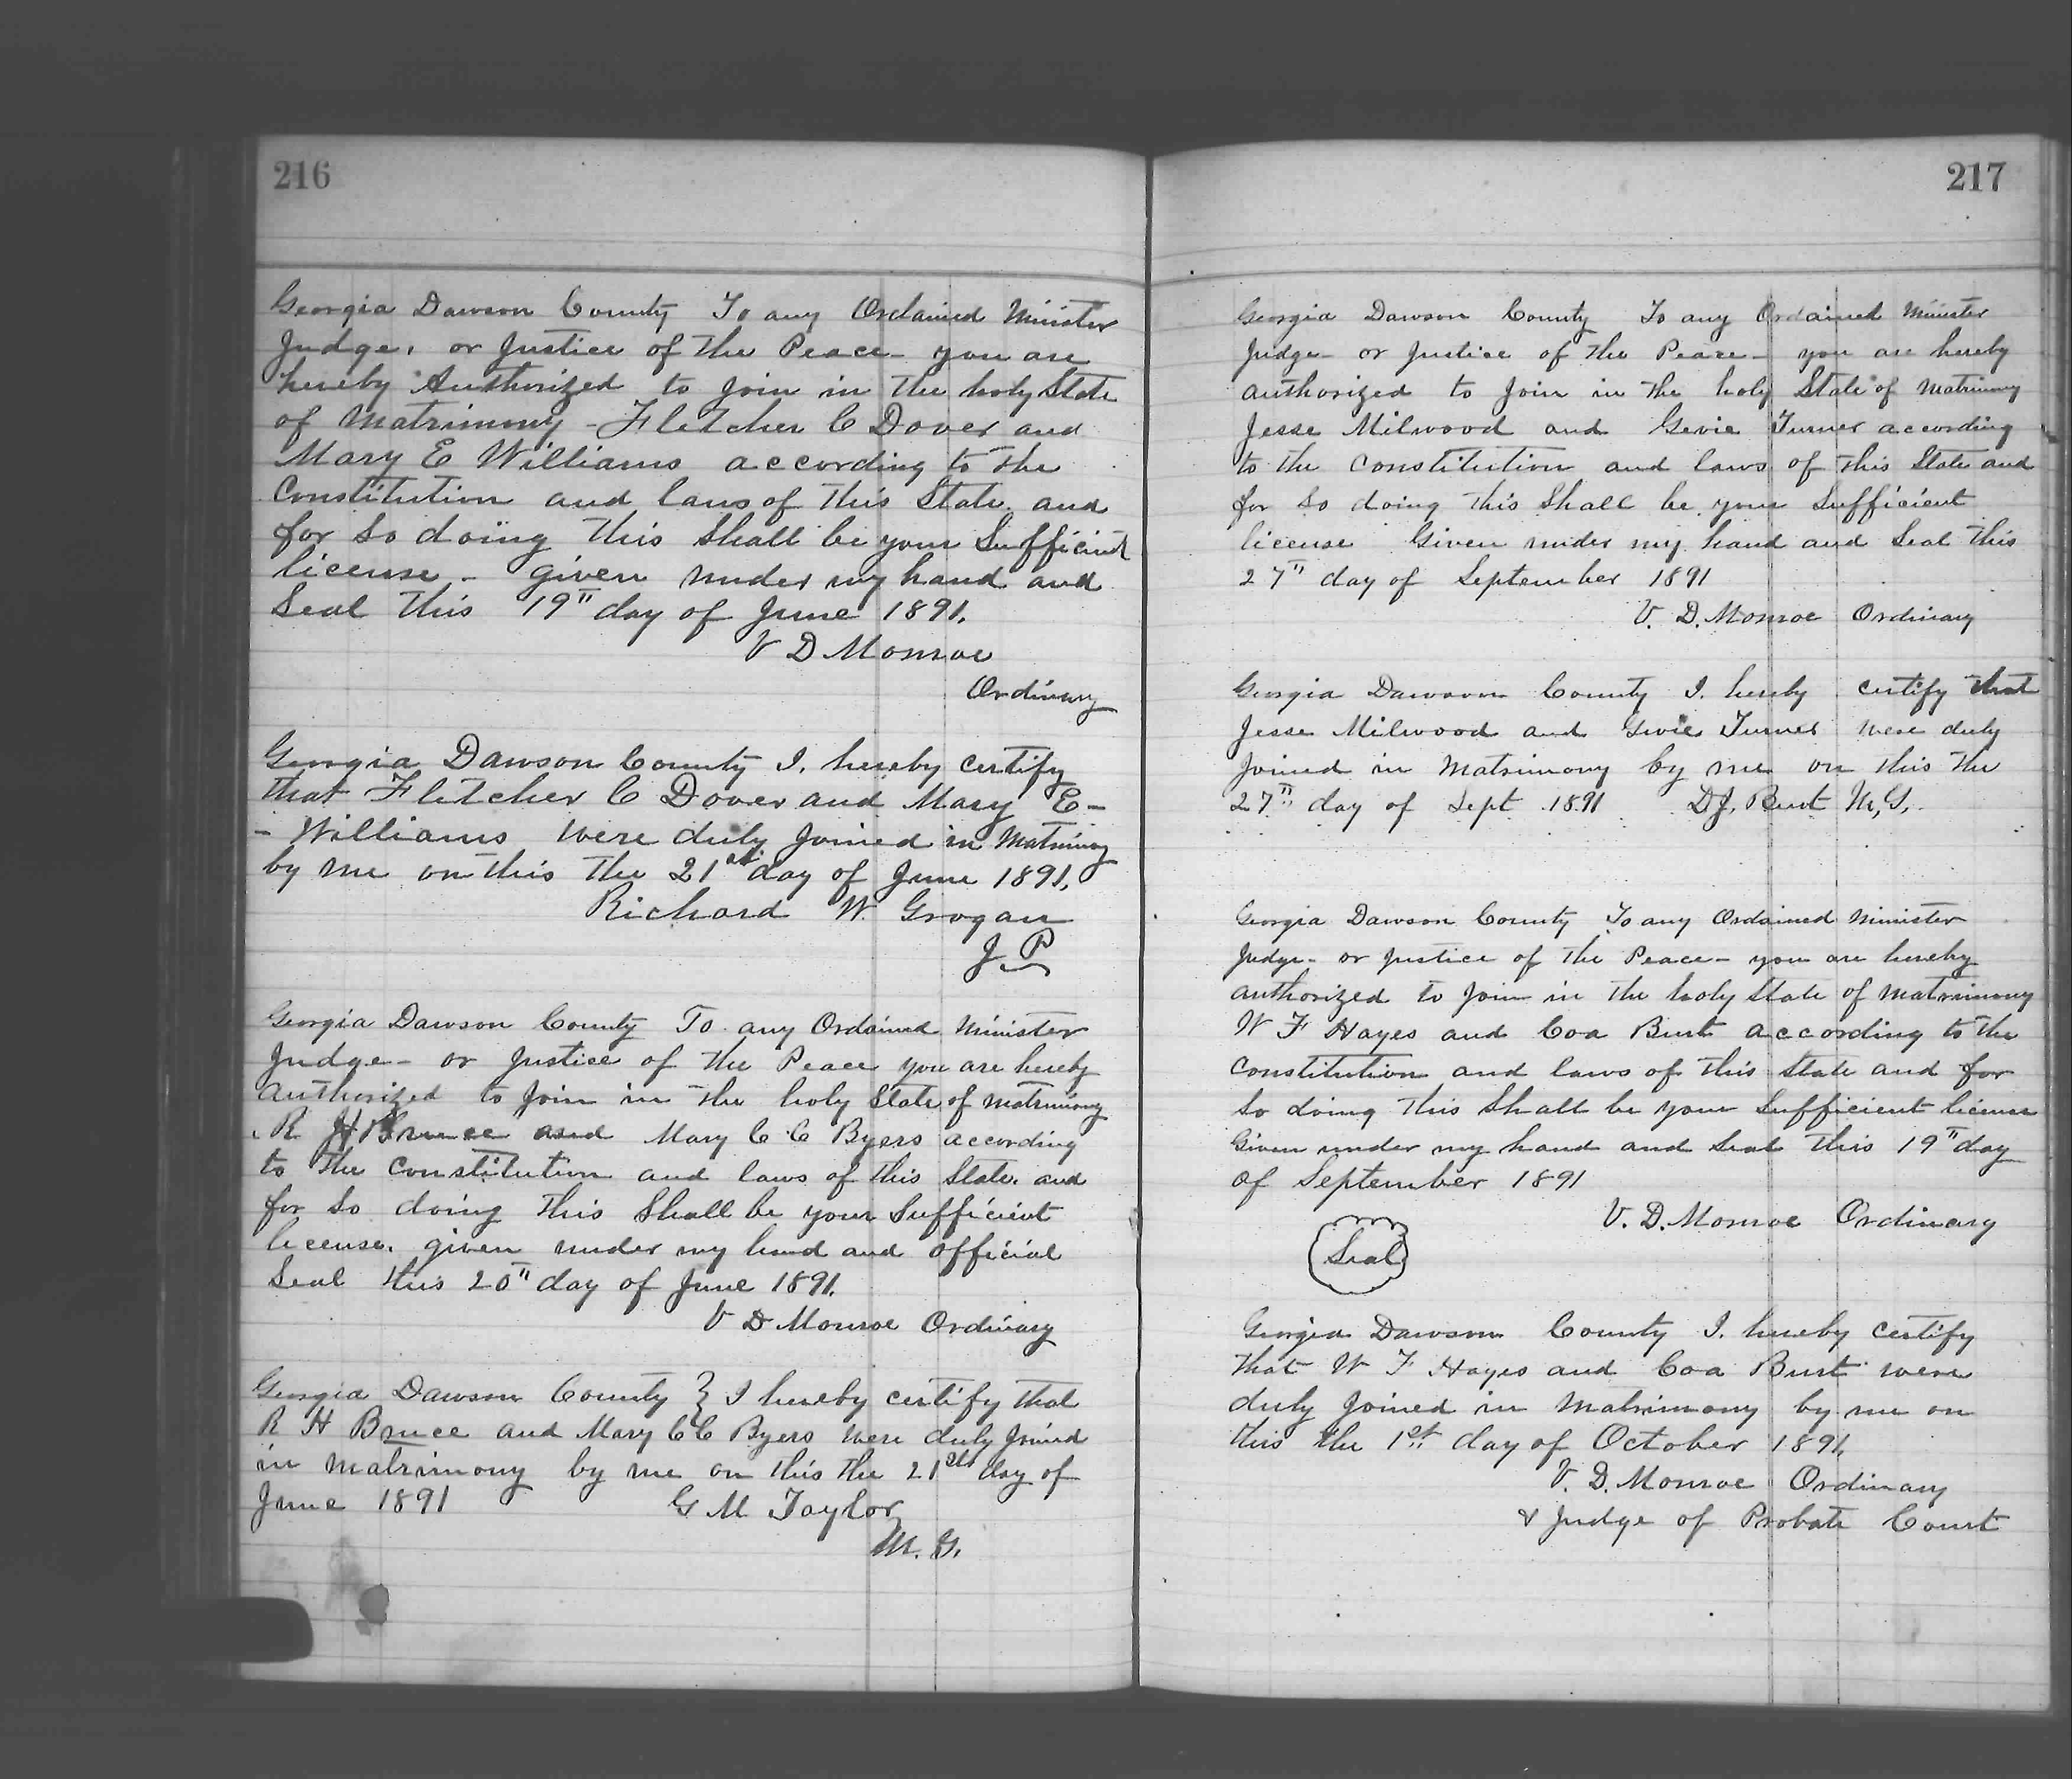 216
Georgia Dawson County To any Ordained Minister
Judge, or Justice of the Peace - you are
hereby Authorized to join in the holy State
of Matrimony - Fletcher C Dover and
Mary E Williams according to the
Constitution and laws of this State and
for so doing this shall be your Sufficient
license - given under my hand and
Seal this 19" day of June 1891.
V D Monroe
Ordinary
Georgia Dawson County I, hereby certify
that Fletcher C Dover and Mary E -
- Williams were duly joined in Matrimony
by me on this the 21st day of June 1891,
Richard W. Grogan
J P
Georgia Dawson County To any Ordained Minister
Judge - or Justice of the Peace you are hereby
authorized to join in the holy State of matrimony
R H Bruce and Mary C C Byers according
to the Constitution and laws of this State and
for so doing this Shall be your Sufficient
license. given under my hand and official
Seal this 20" day of June 1891.
V D Monroe Ordinary
Georgia Dawson County } I hereby certify that
R H Bruce and Mary C C Byers were duly joined
in matrimony by me on this the 21st day of
June 1891 G M Taylor
M. G.
217
Georgia Dawson County To any Ordained Minister
Judge - or Justice of the Peace - you are hereby
authorized to join in the holy State of Matrimony
Jesse Milwood and Gevie Turner according
to the Constitution and laws of this State and
for so doing this Shall be your Sufficient
license Given under my hand and Seal this
27" day of September 1891
V. D. Monroe Ordinary
Georgia Dawson County I. hereby certify that
Jesse Milwood and Gevie Turner were duly
joined in Matrimony by me on this the
27" day of Sept 1891 D J. Burt M, G,
Georgia Dawson County To any Ordained Minister
Judge - or Justice of the Peace - you are hereby
authorized to join in the holy State of matrimony
W F Hayes and Coa Burt according to the
Constitution and laws of this State and for
so doing this Shall be your Sufficient license
Given under my hand and Seal this 19" day
of September 1891
V. D. Monroe Ordinary
Seal
Georgia Dawson County I. hereby certify
that W F Hayes and Coa Burt were
duly joined in Matrimony by me on
this the 1st day of October 1891,
V. D. Monroe Ordinary
& Judge of Probate Court